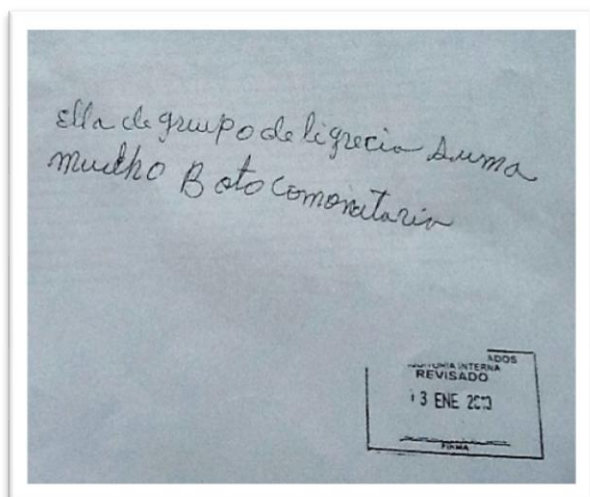 Ella de gruupo de ligrecia suma
mucho Boto comonitaria
ADOS
INTERNA
REVISADO
3 ENE
FIRMA